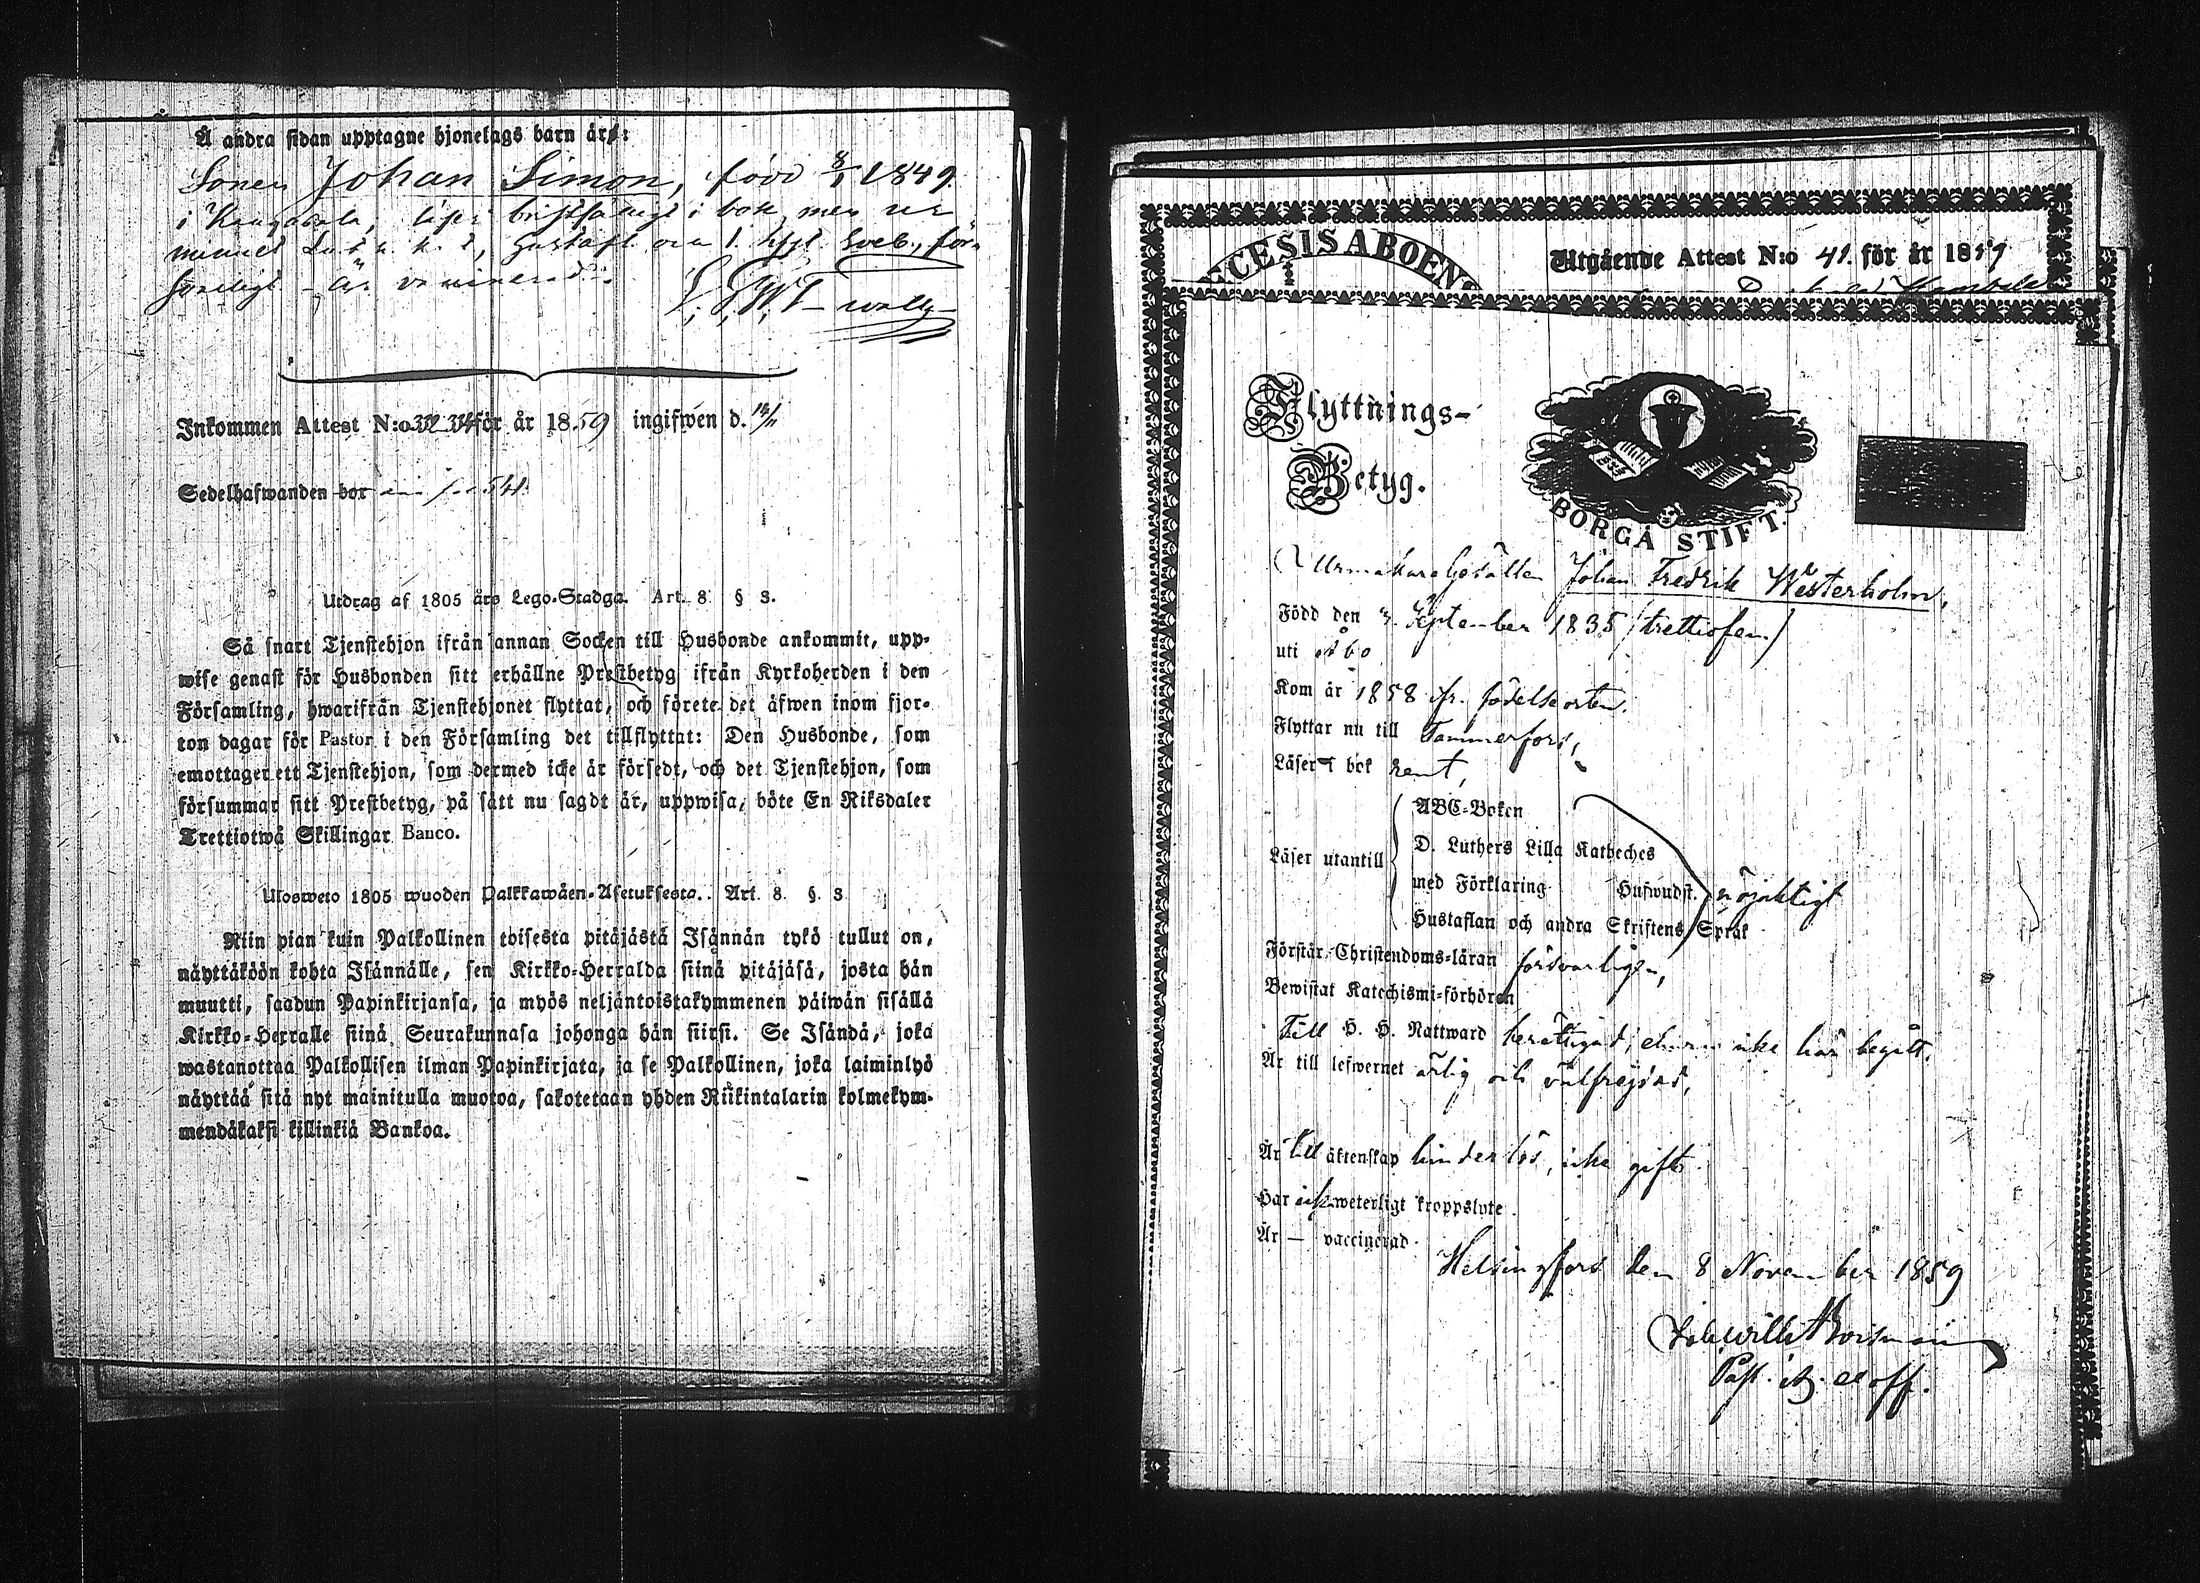 Å andra sidan upptagne hjonelags barn äro:
Sonen Johan Simon, född 8/1 1849.
i bok, men
Inkommen Attest N:o för år 1859 ingifwen d.
Sedelhafwanden bor
Utdrag af 1805 års Lego-Stadga. Art. 8 § 3.
Så snart Tjenstehjon ifrån annan Socken till Husbonde ankommit, upp-
wise genast för Husbonden sitt erhållne Prestbetyg ifrån Kyrkoherden i den
Församling, hwarifrån Tjenstehjonet flyttat, och förete det äfwen inom fjor-
ton dagar för Pastor i den Församling det tillflyttat: Den Husbonde, som
emottager ett Tjenstehjon, som dermed icke är försedt, och det Tjenstehjon, som
försummar sitt Prestbetyg, på sätt nu sagdt är, uppwisa, böte En Riksdaler
Trettiotwå Skillingar Banco.
Ulosweto 1805 wuoden Palkkawäen-Asetuksesta. Art. 8. §. 3
Niin pian kuin Palkollinen toisesta pitäjästä Isännän tykö tullut on,
näyttäköön kohta Isännälle, sen Kirkko-Herralda siinä pitäjäsä, josta hän
muutti, saadun Papinkirjansa, ja myös neljäntoistakymmenen päiwän sisällä
Kirkko-Herralle siinä Seurakunnasa johonga hän siirsi. Se Isändä, joka
wastanottaa Palkollisen ilman Papinkirjata, ja se Palkollinen, joka laiminlyö
näyttää sitä nyt mainitulla muotoa, sakotetaan yhden Riikintalarin kolmekym-
mendäkaksi killinkiä Bankoa.
ECESIS ABOEN
Utgående Attest N:o 41. för år 1859
Flyttnings-
Betyg.
BORGÅ STIFT.
Urmakare Gesällen Johan Fredrik Westerholm,
Född den September 1835 /trettiofem/
uti Åbo
Kom år 1858 fr. födelseorten.
Flyttar nu till Tammerfors,
Läser i bok rent,
Läser utantill
ABC-Boken
D. Luthers Lilla Katheches
med Förklaring Hufwudst.
Hustaflan och andra Skriftens Språk
nöjaktigt
Förstår Christendoms-läran försvarligen,
Bewistat Katechismi-förhören
Till H. H. Nattward berättigad, ehuru icke här begått.
Är till lefwernet ärlig och välfrejdad,
Är till äktenskap hinderlös, icke gift.
Har icke weterligt kroppslyte
Är — vaccinerad.
Helsingfors den 8 November 1859